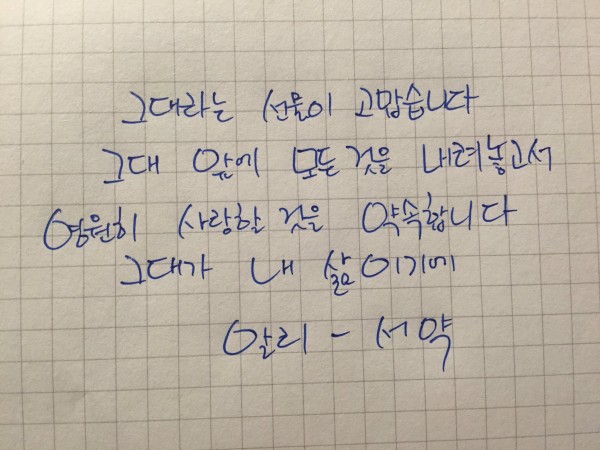 그대라는 선물이 고맙습니다
그대 앞에 모든것을 내려놓고서
영원히 사랑할 것을 약속합니다
그대가 내 삶이기에
알리 - 서약